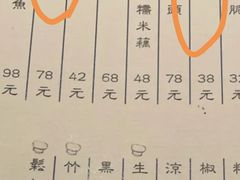 魚
糯米藕
頭
脆
98元
78元
42元
68元
48元
78元
38元
32元
鬆
竹
黑
生
涼
椒
料